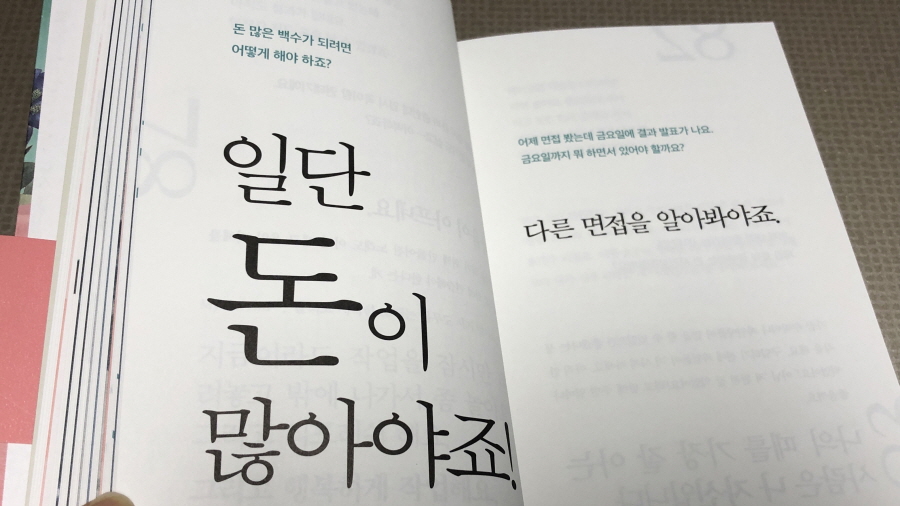 돈 많은 백수가 되려면
어떻게 해야 하죠?
일단
돈이
많아야죠!
어제 면접 봤는데 금요일에 결과 발표가 나요.
금요일까지 뭐 하면서 있어야 할까요?
다른 면접을 알아봐야죠.